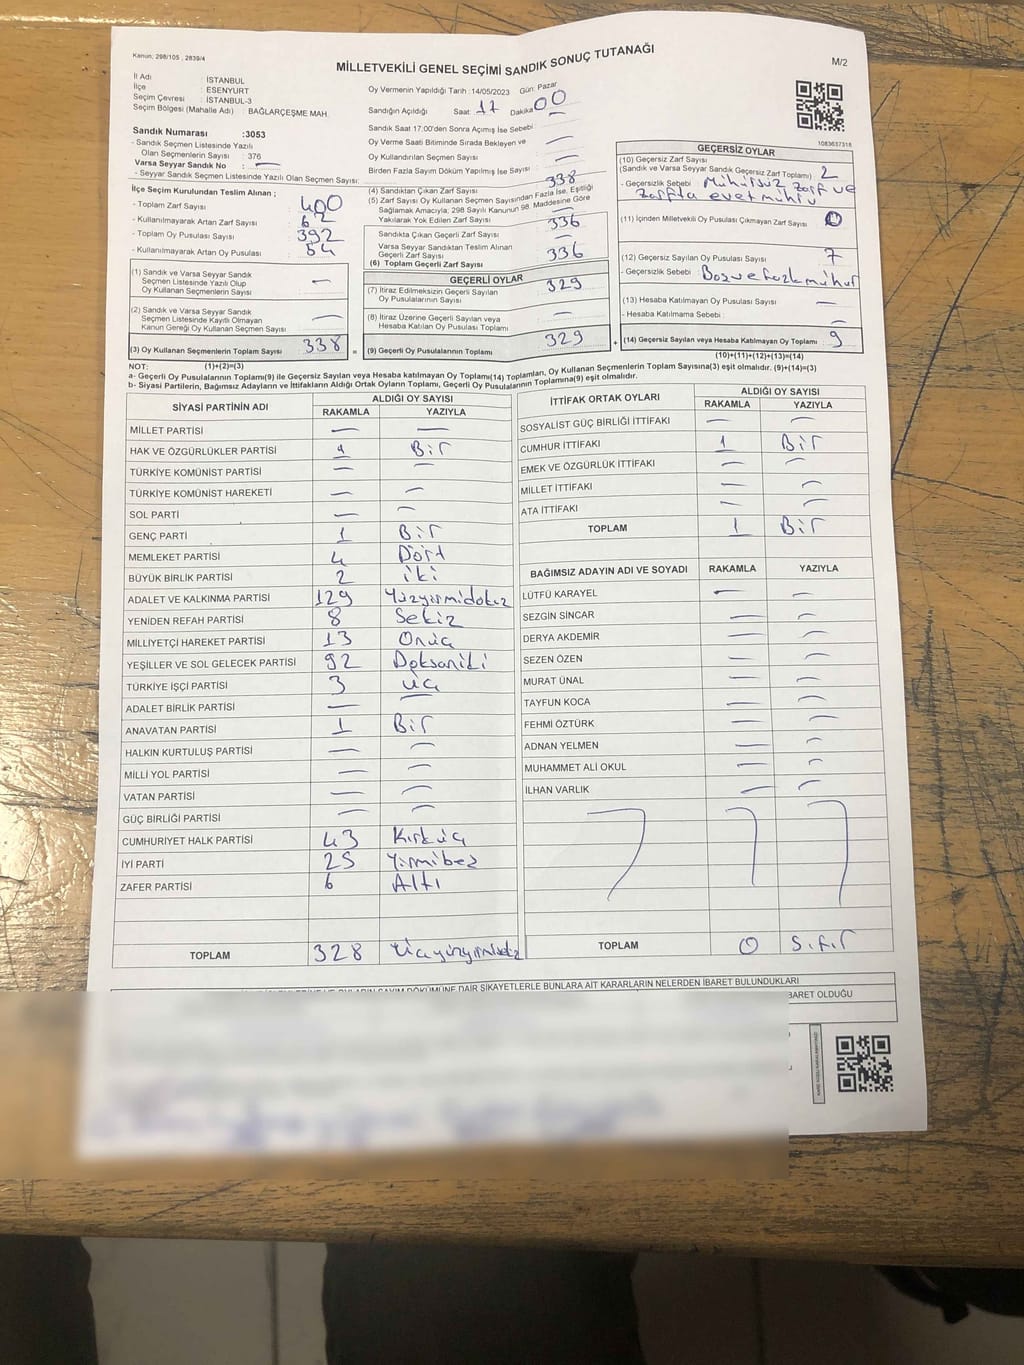 Kanun; 298/105 , 2839/4
MİLLETVEKİLİ GENEL SEÇİMİ SANDIK SONUÇ TUTANAĞI
M/2
İl Adı : İSTANBUL
İlçe : ESENYURT
Seçim Çevresi : İSTANBUL-3
Seçim Bölgesi (Mahalle Adı) : BAĞLARÇEŞME MAH.
Oy Vermenin Yapıldığı Tarih :14/05/2023 Gün: Pazar
Sandığın Açıldığı Saat: 17 Dakika 00
Sandık Saat 17.00'den Sonra Açımış İse Sebebi: —
Oy Verme Saati Bitiminde Sırada Bekleyen ve —
Oy Kullandırılan Seçmen Sayısı —
Birden Fazla Sayım Döküm Yapılmış İse Sayısı —
1083637318
Sandık Numarası :3053
- Sandık Seçmen Listesinde Yazılı
Olan Seçmenlerin Sayısı : 376
Varsa Seyyar Sandık No : —
- Seyyar Sandık Seçmen Listesinde Yazılı Olan Seçmen Sayısı:
İlçe Seçim Kurulundan Teslim Alınan ;
- Toplam Zarf Sayısı : 400
- Kullanılmayarak Artan Zarf Sayısı : 62
- Toplam Oy Pusulası Sayısı : 392
- Kullanılmayarak Artan Oy Pusulası : 54
(1) Sandık ve Varsa Seyyar Sandık
Seçmen Listesinde Yazılı Olup
Oy Kullanan Seçmenlerin Sayısı —
(2) Sandık ve Varsa Seyyar Sandık
Seçmen Listesinde Kayıtlı Olmayan
Kanun Gereği Oy Kullanan Seçmen Sayısı —
(3) Oy Kullanan Seçmenlerin Toplam Sayısı 338
(1)+(2)=(3)
(4) Sandıktan Çıkan Zarf Sayısı 338
(5) Zarf Sayısı Oy Kullanan Seçmen Sayısından Fazla İse, Eşitliği
Sağlamak Amacıyla; 298 Sayılı Kanunun 98. Maddesine Göre
Yakılarak Yok Edilen Zarf Sayısı —
Sandıkta Çıkan Geçerli Zarf Sayısı 336
Varsa Seyyar Sandıktan Teslim Alınan
Geçerli Zarf Sayısı —
(6) Toplam Geçerli Zarf Sayısı 336
GEÇERLİ OYLAR
(7) İtiraz Edilmeksizin Geçerli Sayılan
Oy Pusulalarının Sayısı 329
(8) İtiraz Üzerine Geçerli Sayılan veya
Hesaba Katılan Oy Pusulası Toplamı —
= (9) Geçerli Oy Pusulalarının Toplamı 329
GEÇERSİZ OYLAR
(10) Geçersiz Zarf Sayısı
(Sandık ve Varsa Seyyar Sandık Geçersiz Zarf Toplamı) 2
- Geçersizlik Sebebi : Mühürsüz zarf ve
zarfta evet mühru
(11) İçinden Milletvekili Oy Pusulası Çıkmayan Zarf Sayısı
(12) Geçersiz Sayılan Oy Pusulası Sayısı 7
- Geçersizlik Sebebi : Boş ve fazla mühür
(13) Hesaba Katılmayan Oy Pusulası Sayısı —
- Hesaba Katılmama Sebebi : —
+ (14) Geçersiz Sayılan veya Hesaba Katılmayan Oy Toplamı 9
(10)+(11)+(12)+(13)=(14)
NOT:
a- Geçerli Oy Pusulalarının Toplamı(9) ile Geçersiz Sayılan veya Hesaba Katılmayan Oy Toplamı(14) Toplamları, Oy Kullanan Seçmenlerin Toplam Sayısına(3) eşit olmalıdır. (9)+(14)=(3)
b- Siyasi Partilerin, Bağımsız Adayların ve İttifakların Aldığı Ortak Oyların Toplamı, Geçerli Oy Pusulalarının Toplamına(9) eşit olmalıdır.
SİYASİ PARTİNİN ADI ALDIĞI OY SAYISI
RAKAMLA YAZIYLA
MİLLET PARTİSİ — —
HAK VE ÖZGÜRLÜKLER PARTİSİ 1 Bir
TÜRKİYE KOMÜNİST PARTİSİ — —
TÜRKİYE KOMÜNİST HAREKETİ — —
SOL PARTİ — —
GENÇ PARTİ 1 Bir
MEMLEKET PARTİSİ 4 Dört
BÜYÜK BİRLİK PARTİSİ 2 iki
ADALET VE KALKINMA PARTİSİ 129 Yüzyirmidokuz
YENİDEN REFAH PARTİSİ 8 Sekiz
MİLLİYETÇİ HAREKET PARTİSİ 13 Onüç
YEŞİLLER VE SOL GELECEK PARTİSİ 92 Doksaniki
TÜRKİYE İŞÇİ PARTİSİ 3 üç
ADALET BİRLİK PARTİSİ — —
ANAVATAN PARTİSİ 1 Bir
HALKIN KURTULUŞ PARTİSİ — —
MİLLİ YOL PARTİSİ — —
VATAN PARTİSİ — —
GÜÇ BİRLİĞİ PARTİSİ — —
CUMHURİYET HALK PARTİSİ 43 Kırküç
İYİ PARTİ 25 Yirmibeş
ZAFER PARTİSİ 6 Altı
TOPLAM 328 üçyüzyirmisekiz
İTTİFAK ORTAK OYLARI ALDIĞI OY SAYISI
RAKAMLA YAZIYLA
SOSYALİST GÜÇ BİRLİĞİ İTTİFAKI — —
CUMHUR İTTİFAKI 1 Bir
EMEK VE ÖZGÜRLÜK İTTİFAKI — —
MİLLET İTTİFAKI — —
ATA İTTİFAKI — —
TOPLAM 1 Bir
BAĞIMSIZ ADAYIN ADI VE SOYADI RAKAMLA YAZIYLA
LÜTFÜ KARAYEL — —
SEZGİN SİNCAR — —
DERYA AKDEMİR — —
SEZEN ÖZEN — —
MURAT ÜNAL — —
TAYFUN KOCA — —
FEHMİ ÖZTÜRK — —
ADNAN YELMEN — —
MUHAMMET ALİ OKUL — —
İLHAN VARLIK — —
TOPLAM 0 Sıfır
DÖKÜMÜNE DAİR ŞİKAYETLERLE BUNLARA AİT KARARLARIN NELERDEN İBARET BULUNDUKLARI
BARET OLDUĞU